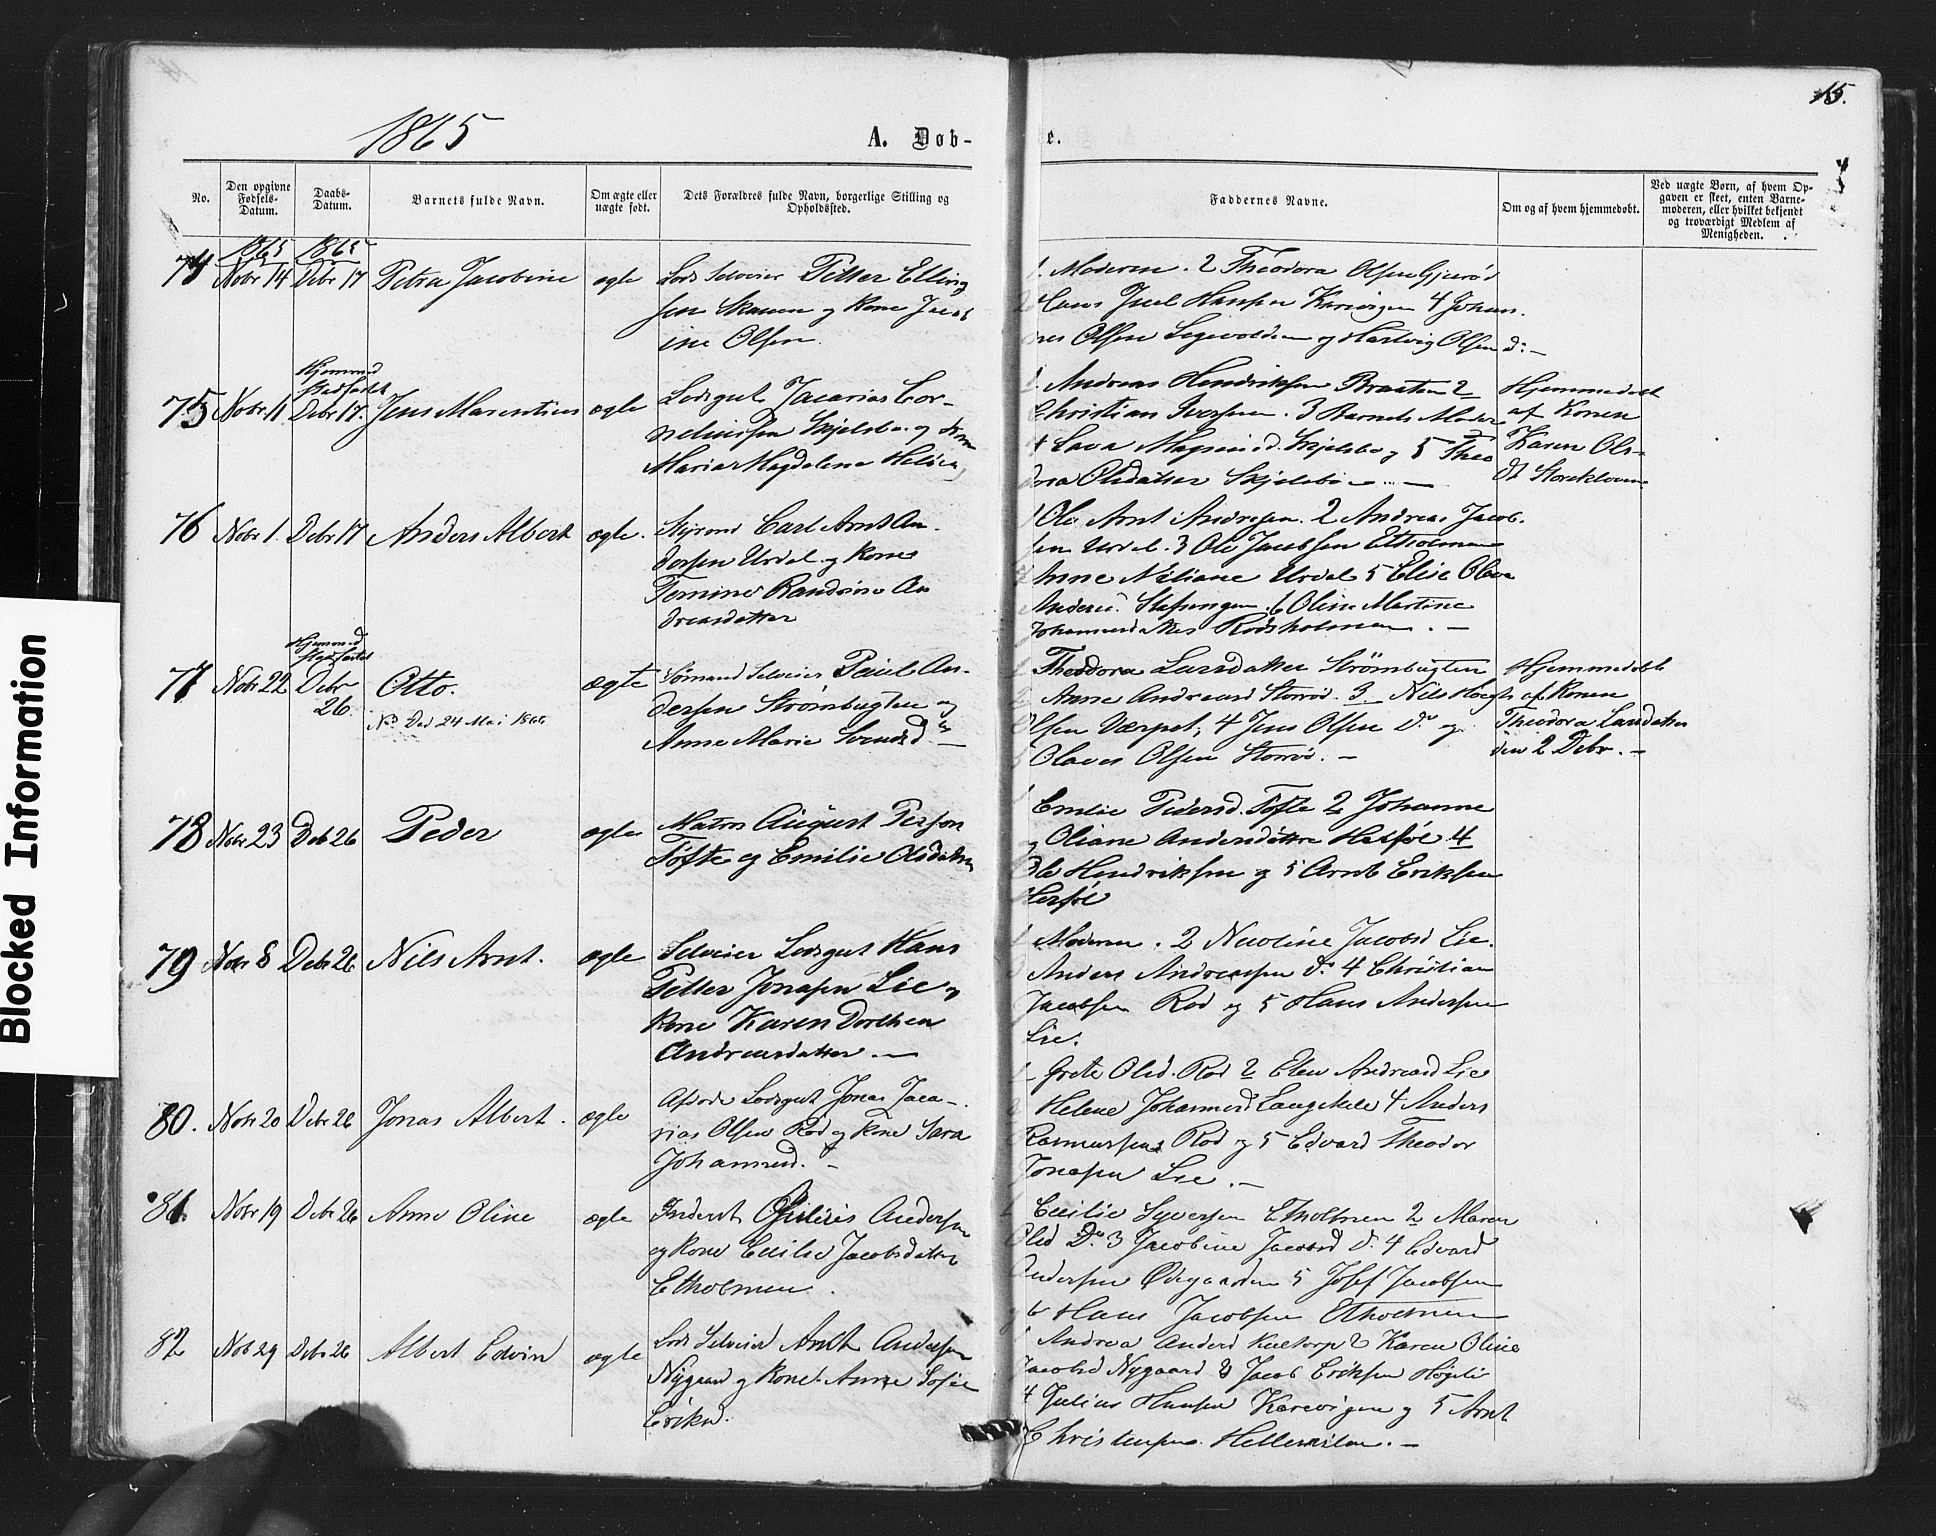 15.
1865
A. Døb-
e.
No.
Den opgivne Fødsels-Datum.
Daabs-Datum.
Barnets fulde Navn.
Om ægte eller uægte født.
Dets Forældres fulde Navn, borgerlige Stilling og Opholdssted.
Faddernes Navne.
Om og af hvem hjemmedøbt.
Ved uægte Børn, af hvem Opgaven er skeet, enten Barnemoderen, eller hvilket bekjendt og troværdigt Medlem af Menigheden.
1865 1865
74 Nobr 14 Debr 17 Petra Jacobine ægte
Lods Selveier Petter Elling
sen Skauen og Kone Jacob
ine Olsen.
1. Moderen. 2 Theodora Olsen
Juel Hansen 4 Johan
nes Olsen og Hartvig Olsen d: —
Hjemmed
stadfæstet
75 Nobr 11 Debr 17. Jens Marentius ægte
Lodsgut Zacarias Cor-
neliussen Skjelsbo og Kone
Maria Magdalena
1. Andreas Hendriksen Braaten 2
Christian Iversen. 3 Barnets Moder
4 Lava Skjelsbo og 5 Theo
dora Olsdatter Skjelsbo —
Hjemmedøbt
af Konen
Karen Ols-
dt
76 Nobr 1. Debr 17 Anders Albert ægte.
Styrmd Carl Arnt An
dersen Urdal og Kone
Randine An
dreasdatter
1 Ole Arnt Andresen. 2 Andreas Jacob.
sen Urdal. 3 Ole Jacobsen Etholmen
Anne Urdal 5 Elise Olava
6 Oline Martine
Johannesdatter Rødsholmen. —
Hjemmed
stadfæstet
77 Nobr 22 Debr 26. Otto. ægte
Død 24 Mai 1866
Sømand Selveier Paul An-
dersen Strømbugten og
Anne Marie Svendsd. —
1 Theodora Larsdatter Strømbugten
Anne Andreasd Storrød. 3 Nils
Olsen Værpet, 4 Jens Olsen Do og
5 Olaves Olsen Storrød. —
Hjemmedøbt
af Konen
Theodora Larsdatter
den 2 Debr. —
78 Nobr 23 Deb 26 Peder ægte
Matros August Person
Tofte og Emilie Olsdatter
1 Emilie Pedersd. Tofte 2 Johanne
og Oliane Andersdøttre Herføl 4
Ole Hendriksen og 5 Arnt Eriksen
Herføl
79 Nobr 8 Debr 26 Nils Arnt. ægte
Selveier Lodsgut Hans
Petter Jonasen Lie og
Kone Karen Dorthea
Andreasdatter. —
1 Moderen. 2 Nicoline Jacobsd Lie.
Anders Andreassen do 4 Christian
Jacobsen Rød og 5 Hans Andersen
Lie.
80. Nobr 20 Debr 26 Jonas Albert. ægte
Afdøde Lodsgut Jonas Zaca-
rias Olsen Rød og Kone Sara
Johannesd. —
1 Grete Olsd. Rød 2 Elen Andreasd Lie
Helene Johannesd Langekile 4 Anders
Rasmussen Rød og 5 Edvard Theodor
Jonasen Lie. —
81. Nobr 19 Debr 26 Anne Oline ægte
Inderst Andersen
og Kone Cecilie Jacobsdatter
Etholmen.
1 Cecilie Syversen Etholmen 2 Maren
Olsd Do 3 Jacobine Jacobsd Do 4 Edvard
Andersen Ødegaarden 5 Josef Jacobsen
og 6 Hans Jacobsen Etholmen
82 Nob 29 Debr 26 Albert Edvin ægte
Lods Selveier Arnt Andersen
Nygaard og Kone Anne Sofie
Eriksd.
1 Andrea Andersd 2 Karen Oline
Jacobsd Nygaard 3 Jacob Eriksen
4 Julius Hansen og 5 Arnt
Christensen Hellekilen. —
Blocked Information